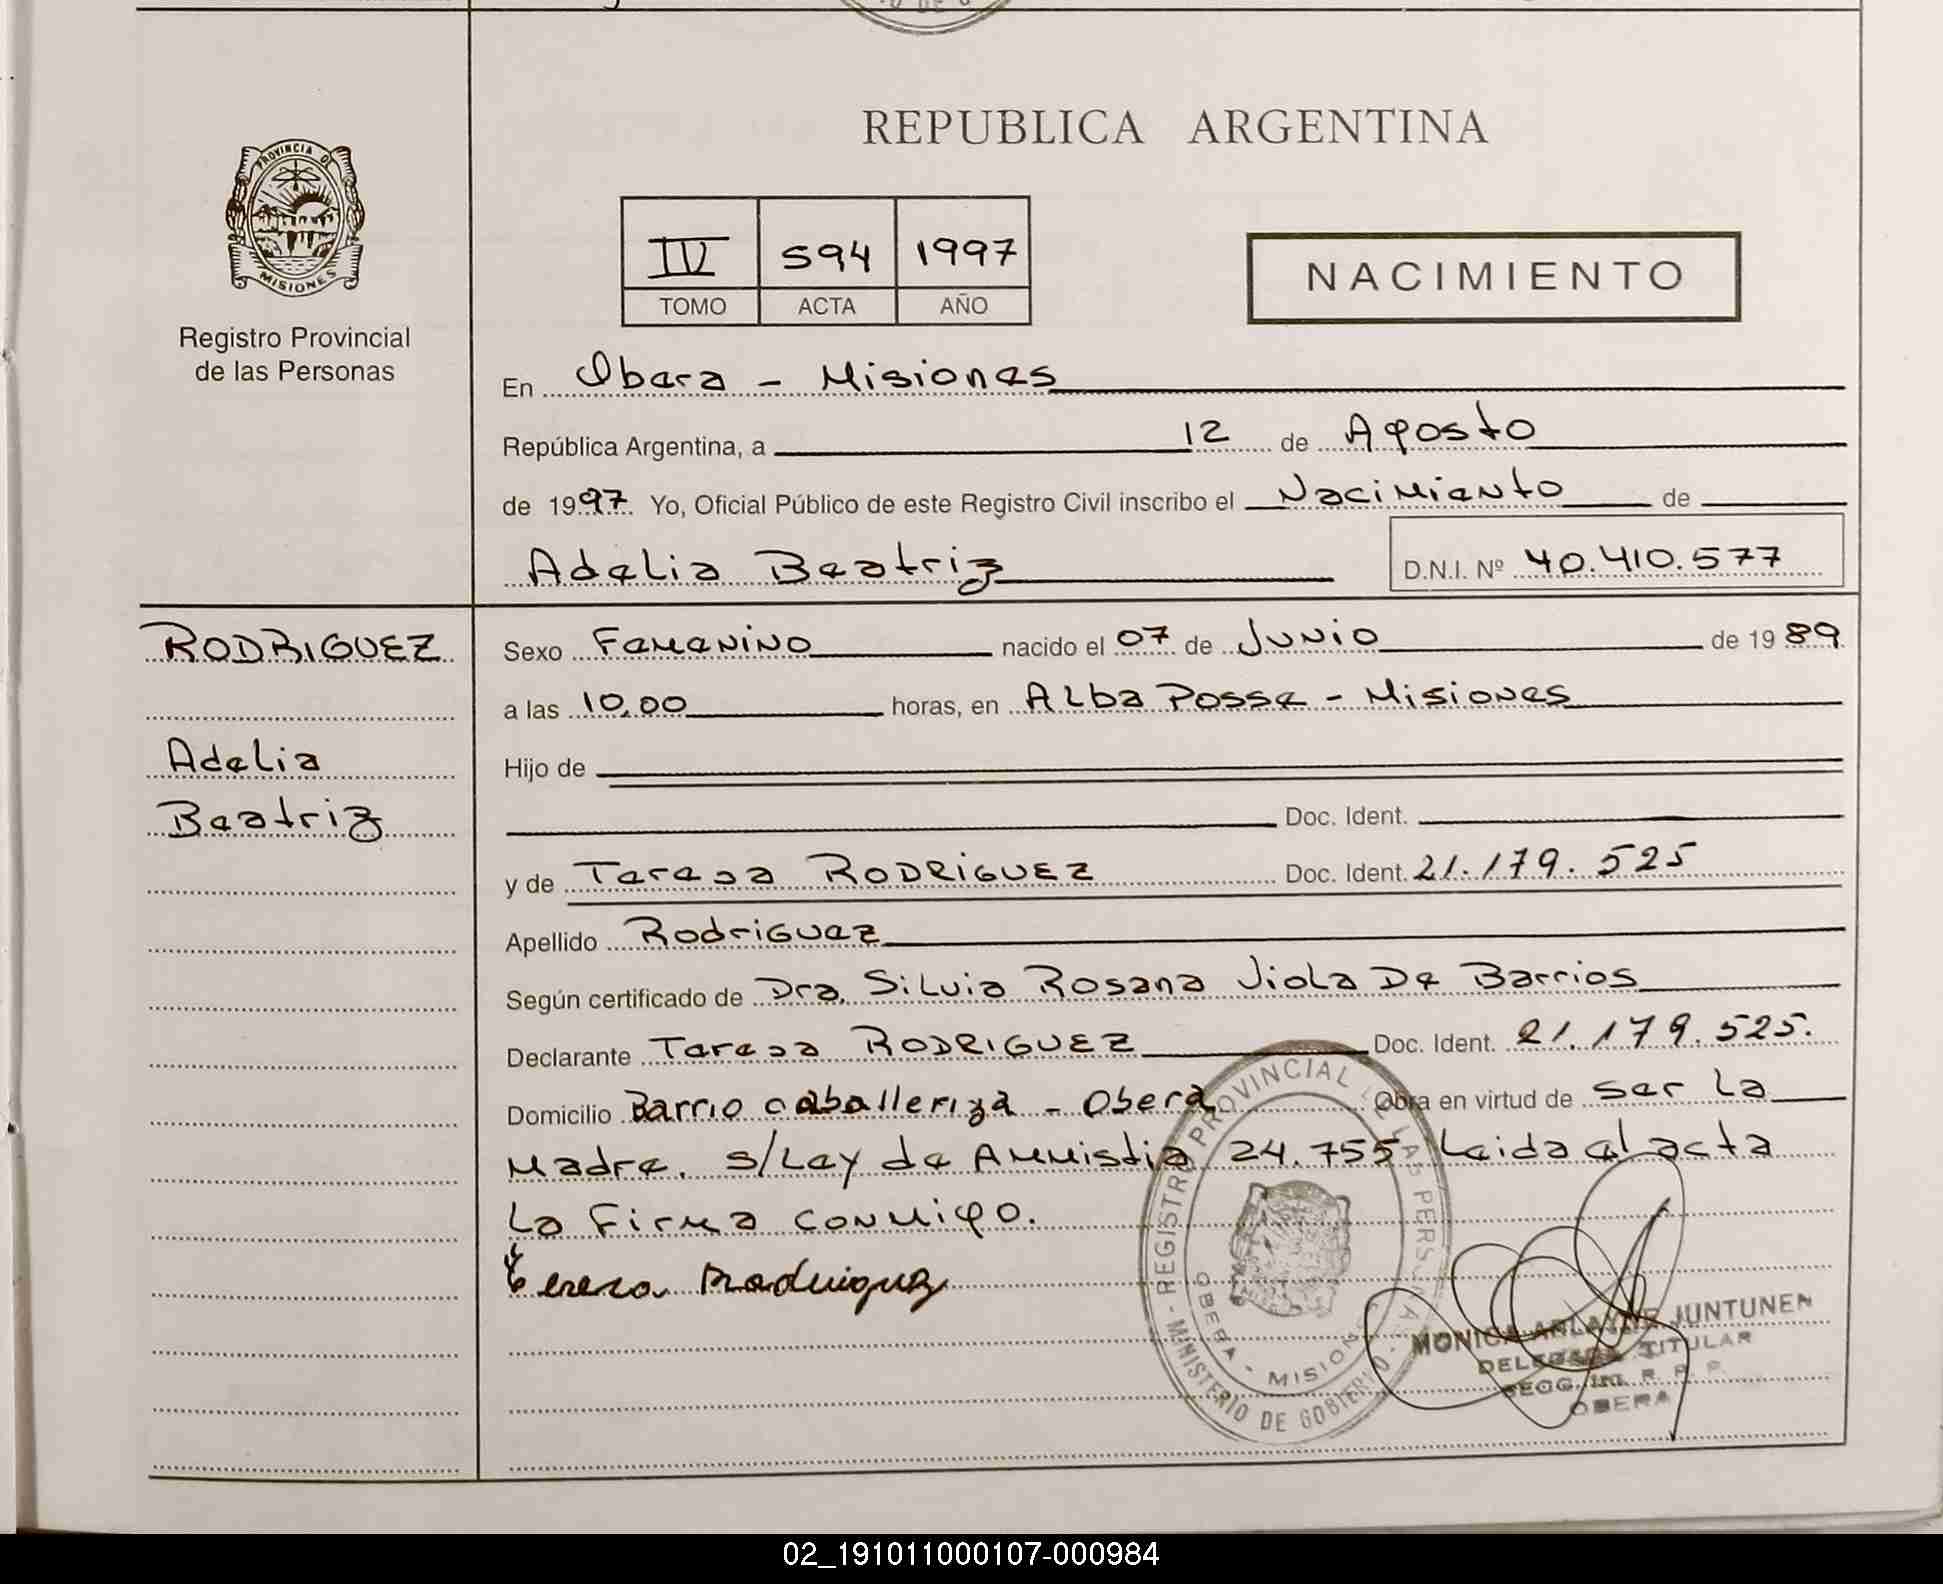 REPUBLICA ARGENTINA
PROVINCIA DE
MISIONES
Registro Provincial
de las Personas
IV 594 1997
TOMO ACTA AÑO
NACIMIENTO
En Obera - Misiones
República Argentina, a 12 de Agosto
de 1997 Yo, Oficial Público de este Registro Civil inscribo el Nacimiento de
Adelia Beatriz D.N.I. Nº 40.410.577
RODRIGUEZ
Adelia
Beatriz
Sexo Femenino nacido el 07 de Junio de 1989
a las 10,00 horas, en Alba Posse - Misiones
Hijo de
Doc. Ident.
y de Teresa RODRIGUEZ Doc. Ident. 21.179.525
Apellido Rodriguez
Según certificado de Dra. Silvia Rosana Viola De Barrios
Declarante Teresa RODRIGUEZ Doc. Ident. 21.179.525.
Domicilio Barrio caballeriza - Oberá Obra en virtud de ser La
Madre. s/Ley de Amnistia 24.755 Leida el acta
La Firma conmigo.
Teresa Rodriguez
REGISTRO PROVINCIAL DE LAS PERSONAS - MINISTERIO DE GOBIERNO -
OBERA - MISIONES
MONICA ARLAYNE JUNTUNEN
DELEGADA TITULAR
R. P. P.
OBERA
02_191011000107-000984